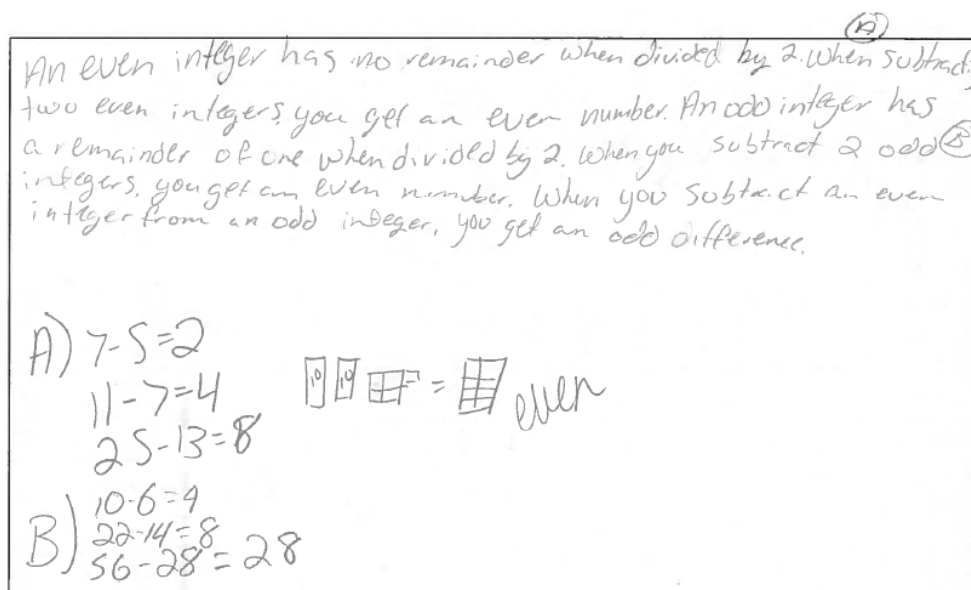 A
An even integer has no remainder when divided by 2. When subtract
two even integers, you get an even number. An odd integer has
a remainder of one when divided by 2. When you subtract 2 odd B
integers, you get an even number. When you subtract an even
integer from an odd integer, you get an odd difference.
A) 7-5=2
11-7=4
25-13=8
10 10 = even
B) 10-6=4
22-14=8
56-28=28